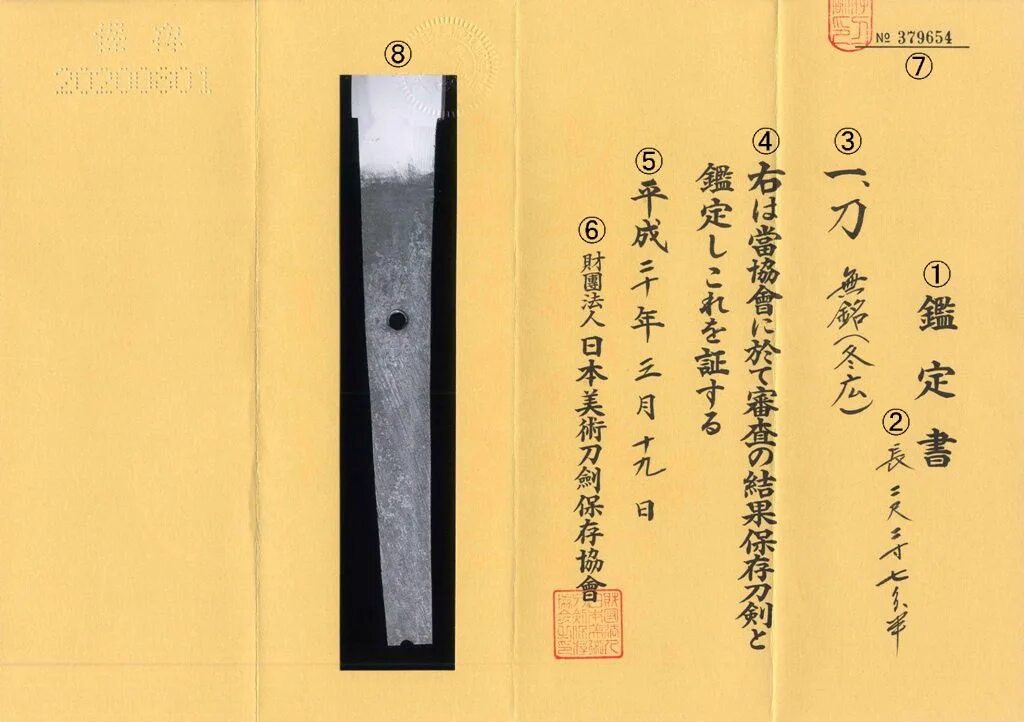 № 379654
⑦
①
鑑定書
②
長二尺二寸七分半
③
一、刀 無銘(冬広)
④
右は當協會に於て審査の結果保存刀剣と
鑑定しこれを証する
⑤
平成二十年三月十九日
⑥
財團法人日本美術刀劍保存協會
⑧
保存
20200801